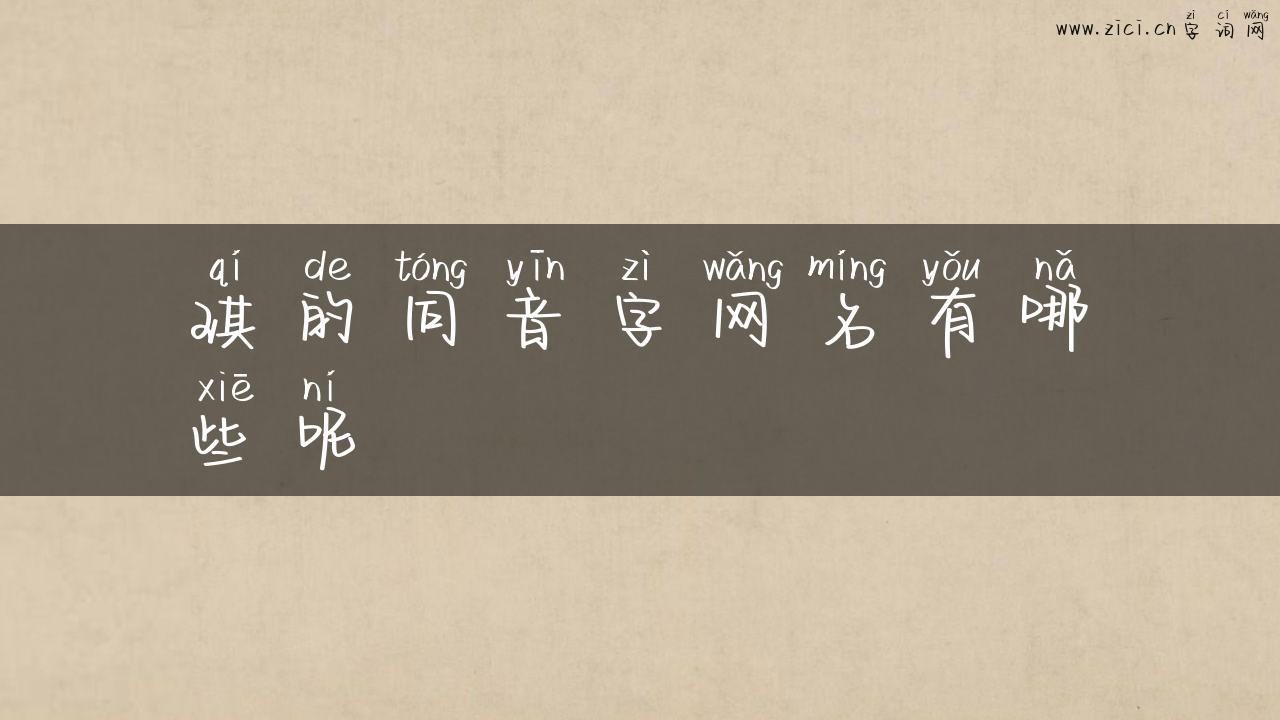 zì cí wǎng
www.zici.cn 字词网
qí de tóng yīn zì wǎng míng yǒu nǎ
琪的同音字网名有哪
xiē ní
些呢